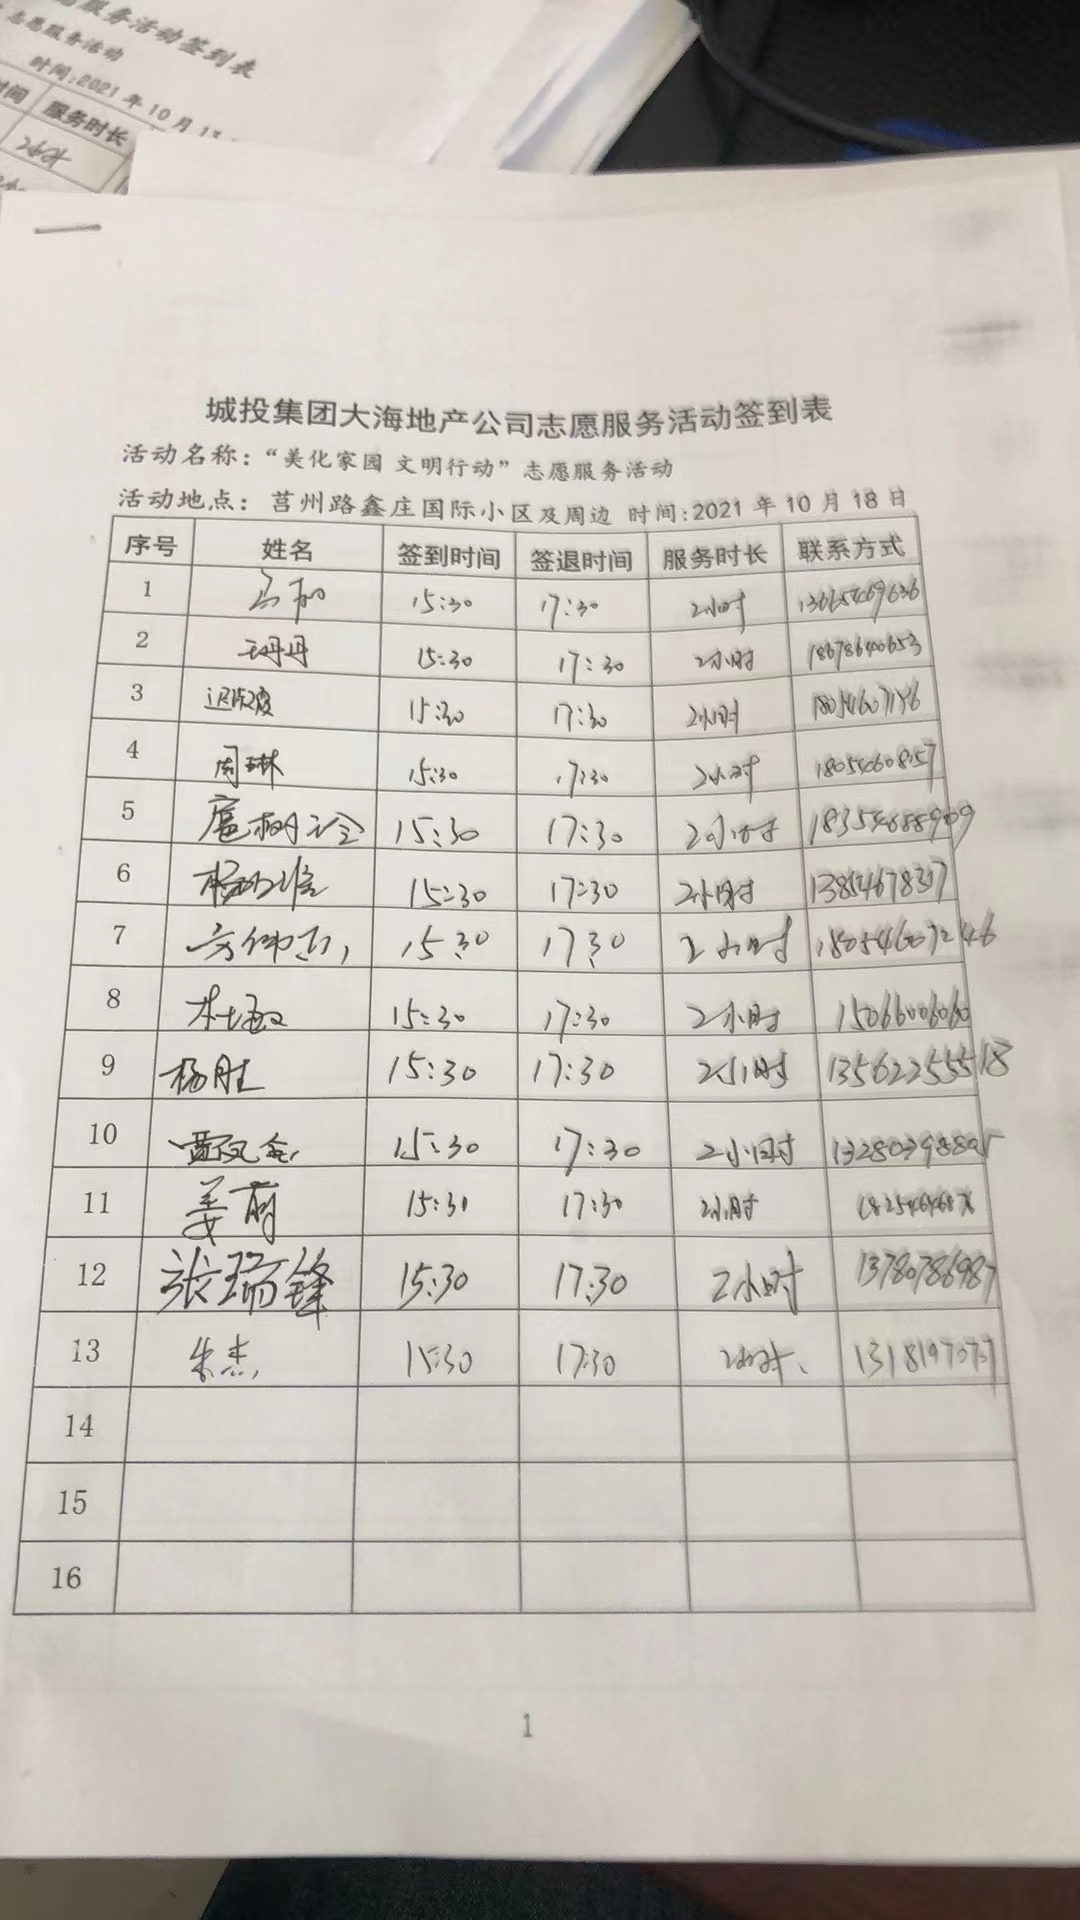 服务活动签到表
志愿服务活动
时间:2021年10月1
时间 服务时长
城投集团大海地产公司志愿服务活动签到表
活动名称:“美化家园 文明行动”志愿服务活动
活动地点: 莒州路鑫庄国际小区及周边 时间:2021年10月18日
序号 姓名 签到时间 签退时间 服务时长 联系方式
1 15:30 17:30 2小时 13665469636
2 王丹丹 15:30 17:30 2小时 18678640653
3 15:30 17:30 2小时 18054607146
4 周琳 15:30 17:30 2小时 18054608157
5 15:30 17:30 2小时 18354688909
6 15:30 17:30 2小时 13854678317
7 15:30 17:30 2小时 18054607246
8 杜敏 15:30 17:30 2小时 15066006060
9 杨胜 15:30 17:30 2小时 13562255518
10 15:30 17:30 2小时 13280398805
11 姜萌 15:30 17:30 2小时
12 张瑞锋 15:30 17:30 2小时 13780786987
13 朱杰 15:30 17:30 2小时
14
15
16
1